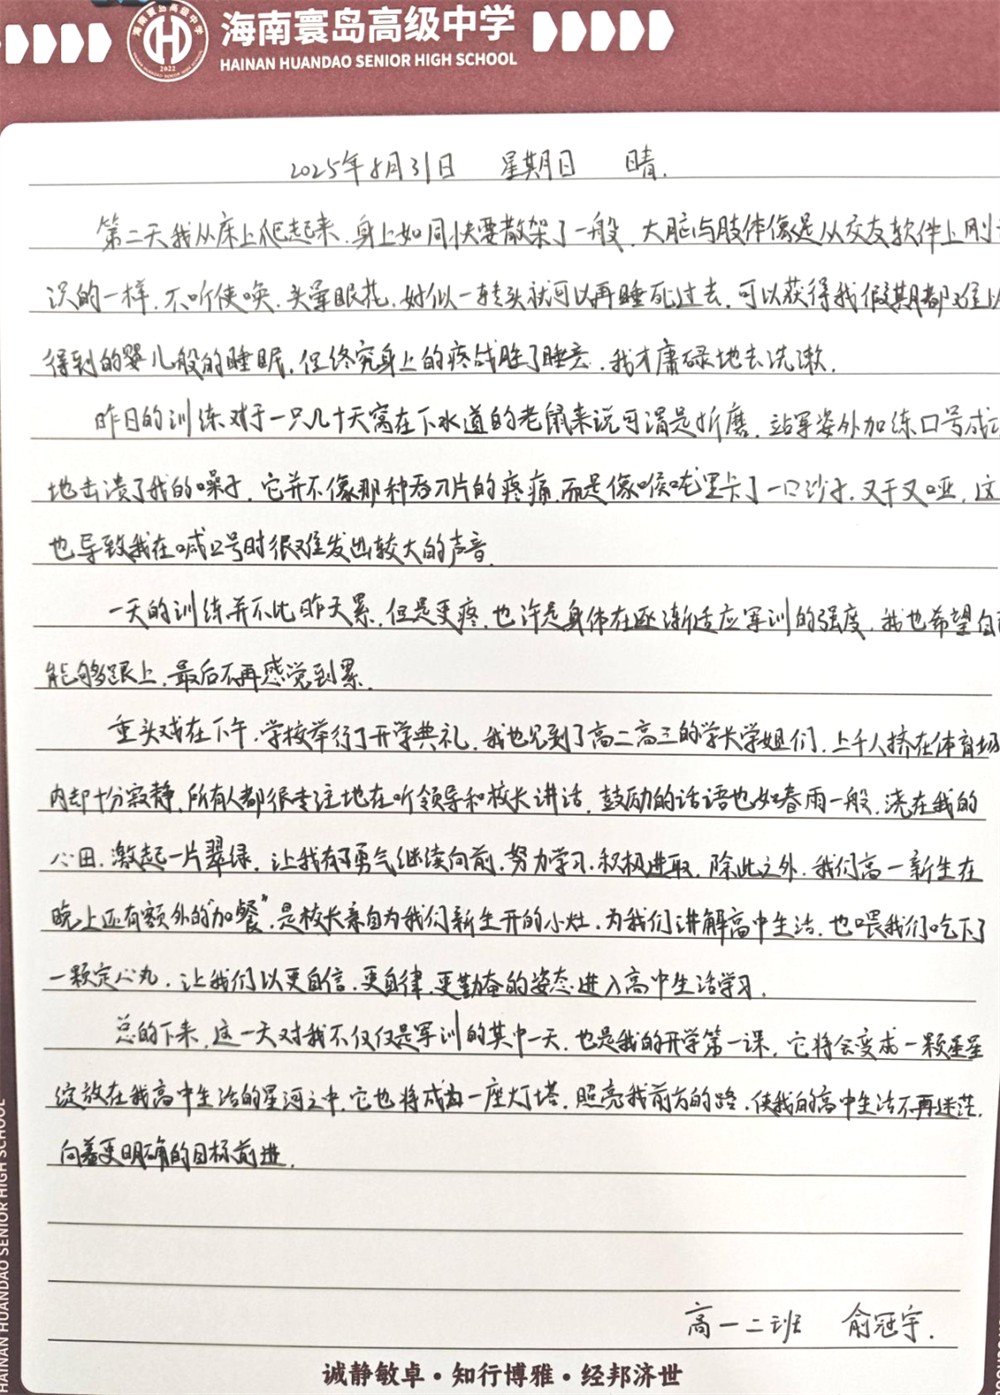 海南寰岛高级中学
HAINAN HUANDAO SENIOR HIGH SCHOOL
2025年8月31日 星期日 晴.
第二天我从床上爬起来.身上如同快要散架了一般.大脑与肢体像是从交友软件上刚
识的一样.不听使唤.头晕眼花.好似一转头就可以再睡死过去.可以获得我假期都难以
得到的婴儿般的睡眠.但终究身上的疼战胜了睡意.我才庸碌地去洗漱.
昨日的训练对于一只几十天窝在下水道的老鼠来说可谓是折磨.站军姿外加练口号成功
地击溃了我的嗓子.它并不像那种吞刀片的疼痛.而是像喉咙里卡了一口沙子.又干又哑.这
也导致我在喊口号时很难发出较大的声音.
一天的训练并不比昨天累.但是更疼.也许是身体在逐渐适应军训的强度.我也希望自己
能够跟上.最后不再感觉到累.
重头戏在下午.学校举行了开学典礼.我也见到了高二高三的学长学姐们.上千人挤在体育场
内却十分寂静.所有人都很专注地在听领导和校长讲话.鼓励的话语也如春雨一般.浇在我的
心田.激起一片翠绿.让我有了勇气继续向前.努力学习.积极进取.除此之外.我们高一新生在
晚上还有额外的"加餐".是校长亲自为我们新生开的小灶.为我们讲解高中生活.也喂我们吃下了
一颗定心丸.让我们以更自信.更自律.更勤奋的姿态进入高中生活学习.
总的下来.这一天对我不仅仅是军训的其中一天.也是我的开学第一课.它将会变成一颗星星
绽放在我高中生活的星河之中.它也将成为一座灯塔.照亮我前方的路.使我的高中生活不再迷茫.
向着更明确的目标前进.
高一二班 俞冠宇.
诚静敏卓·知行博雅·经邦济世
HAINAN HUANDAO SENIOR HIGH SCHOOL